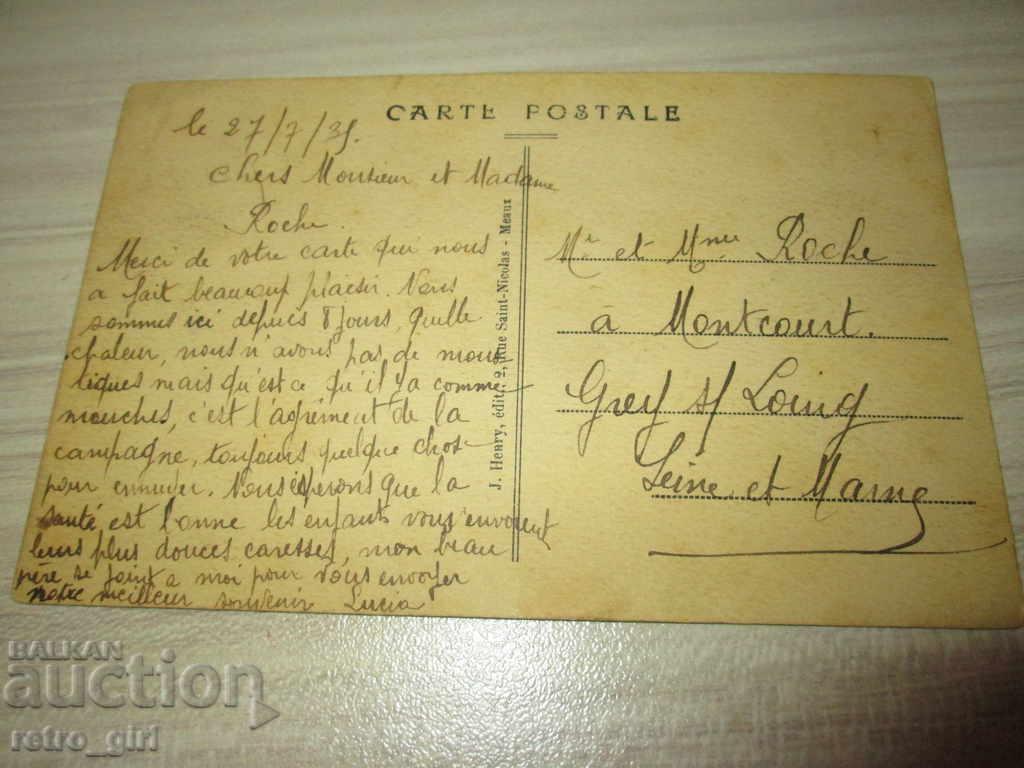 CARTE POSTALE
le 27/7/35.
Chers Monsieur et Madame
Roche.
Merci de votre carte qui nous
a fait beaucoup plaisir. Nous
sommes ici depuis 8 jours, quelle
chaleur, nous n'avons pas de mous
tiques mais qu'est ce qu'il ya comme
mouches, c'est l'agrément de la
campagne, toujours quelque chose
pour ennuyer. Nous espérons que la
santé est bonne les enfants vous envoient
leurs plus douces caresses, mon beau
père se joint a moi pour vous envoyer
notre meilleur souvenir Lucia
J. Henry, édit. 2, Rue Saint-Nicolas - Meaux
Mr et Mme Roche
à Montcourt.
Grey s/ Loing
Seine et Marne
BALKAN
auction
retro_girl